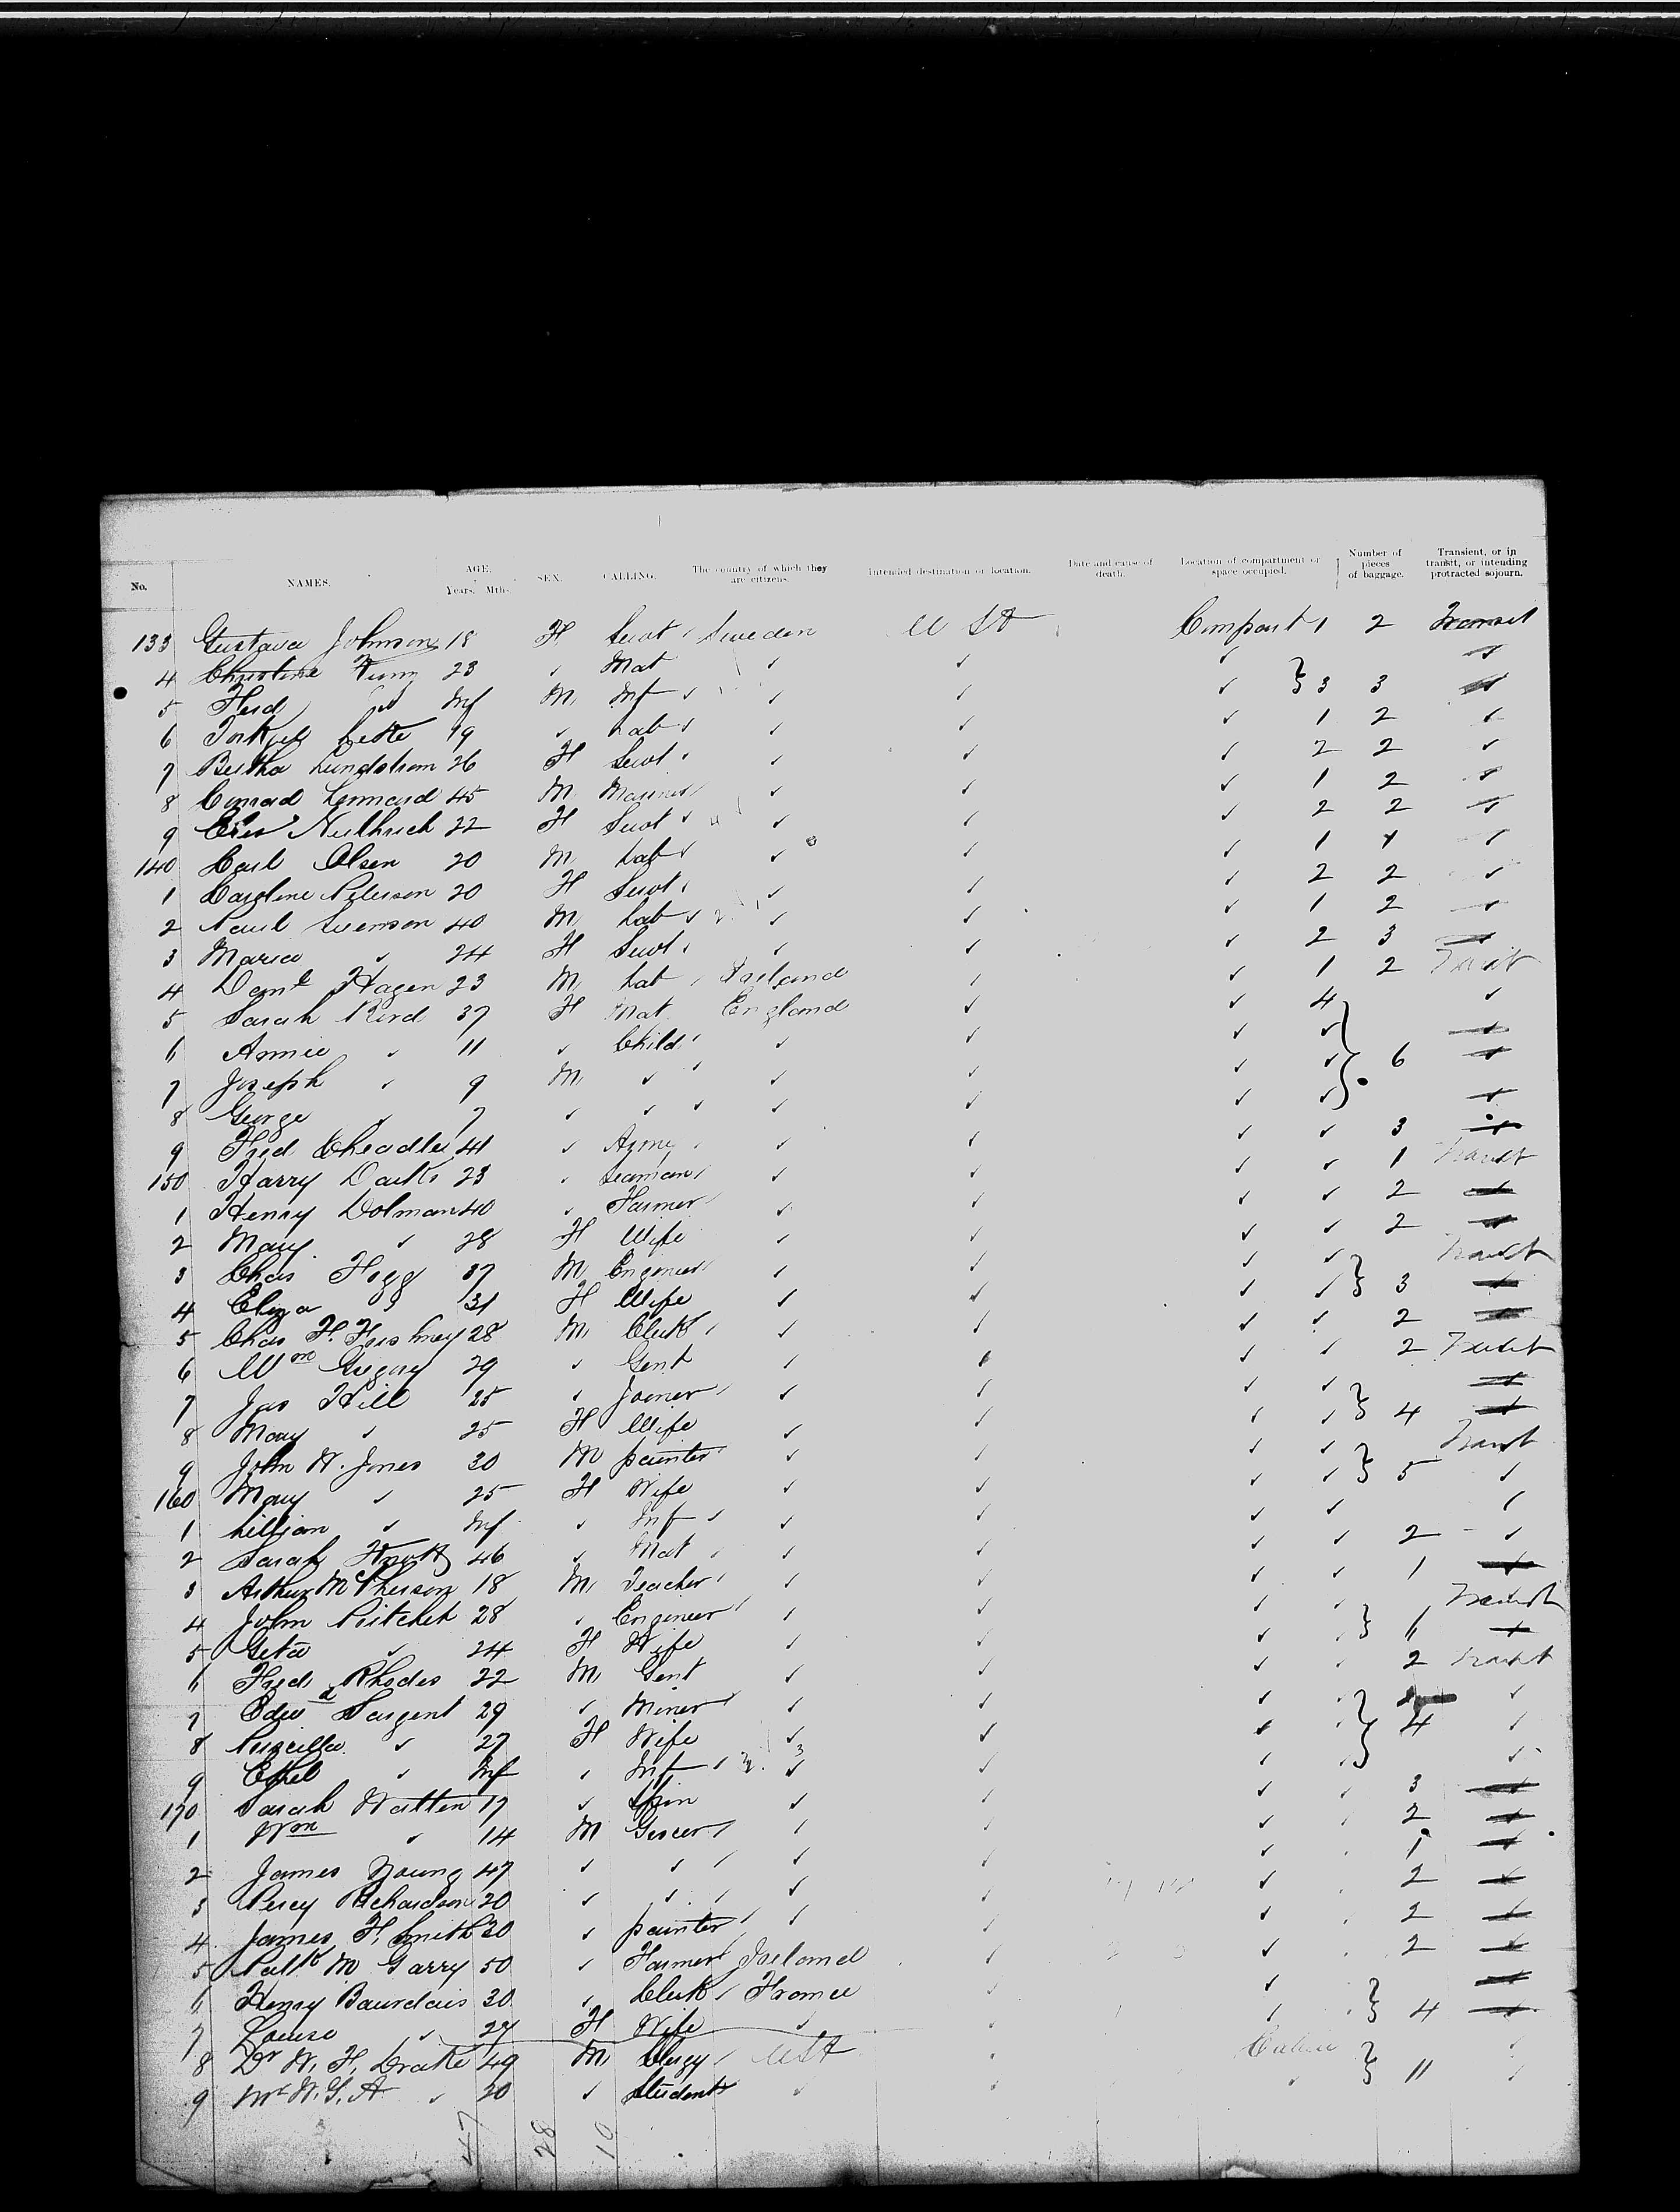 No. NAMES. AGE. Years. Mths. SEX. CALLING. The country of which they are citizens. Intended destination or location. Date and cause of death. Location of compartment or space occupied. Number of pieces of baggage. Transient, or in transit, or intending protracted sojourn.
133 Gustava Johnson 18 F Servt Sweden U St Compart 1 2 Transit
4 Christine 23 ✓ Mat ✓ ✓ ✓ ✓
5 Inf M Inf ✓ ✓ ✓ ✓ 3 3
6 19 ✓ Lab ✓ ✓ ✓ ✓ 1 2 ✓
7 Bertha Lundstrom 26 F Servt ✓ ✓ ✓ 2 2 ✓
8 Conrad Lennard 45 M ✓ ✓ ✓ 1 2 ✓
9 22 F Servt ✓ ✓ ✓ ✓ 2 2 ✓
140 Carl Olsen 20 M Lab ✓ ✓ ✓ ✓ 1 1 ✓
1 Caroline Peterson 20 F Servt ✓ ✓ ✓ 2 2 ✓
2 Paul Svenson 40 M Lab ✓ ✓ ✓ ✓ 1 2 ✓
3 Maria ✓ 24 F Servt ✓ ✓ ✓ 2 3
4 Danl Hagen 23 M Lab Ireland ✓ ✓ 1 2 Transit
5 Sarah 37 F Mat England ✓ ✓ 4 ✓
6 Annie ✓ 11 ✓ Child ✓ ✓ ✓ ✓
7 Joseph ✓ 9 M ✓ ✓ ✓ ✓ ✓ 6
8 George ✓ 7 ✓ ✓ ✓ ✓ ✓ ✓ ✓
9 Fred Cheadle 41 ✓ Army ✓ ✓ ✓ ✓ 3
150 Harry 23 ✓ Seaman ✓ ✓ ✓ ✓ 1 Transit
1 Henry Dolman 40 ✓ Farmer ✓ ✓ ✓ ✓ 2
2 Mary ✓ 28 F Wife ✓ ✓ ✓ ✓ 2
3 Chas Fogg 37 M Engineer ✓ ✓ ✓ ✓ Transit
4 Eliza ✓ 31 F Wife ✓ ✓ ✓ ✓ 3
5 Chas H. 28 M Clerk ✓ ✓ ✓ ✓ 2
6 Wm Gregory 29 ✓ Gent ✓ ✓ ✓ ✓ 2 Transit
7 Jas Hill 25 ✓ Joiner ✓ ✓ ✓ ✓
8 Mary ✓ 25 F Wife ✓ ✓ ✓ ✓ 4
9 John W. Jones 30 M painter ✓ ✓ ✓ ✓ Transit
160 Mary ✓ 25 F Wife ✓ ✓ ✓ ✓ 5 ✓
1 Lillian ✓ Inf ✓ Inf ✓ ✓ ✓ ✓ ✓ ✓
2 Sarah 46 ✓ Mat ✓ ✓ ✓ ✓ 2 ✓
3 Arthur McPherson 18 M Teacher ✓ ✓ ✓ ✓ 1
4 John Pritchet 28 ✓ Engineer ✓ ✓ ✓ ✓ Transit
5 ✓ 24 F Wife ✓ ✓ ✓ ✓
6 Fred Rhodes 22 M Gent ✓ ✓ ✓ ✓ 2 Transit
7 Edwd Sargent 29 ✓ Miner ✓ ✓ ✓ ✓
8 Priscilla ✓ 27 F Wife ✓ ✓ ✓ 4 ✓
9 Ethel ✓ Inf ✓ Inf ✓ ✓ ✓ ✓
170 Sarah 17 ✓ Spin ✓ ✓ ✓ ✓ 3
1 Wm ✓ 14 M Grocer ✓ ✓ ✓ ✓ 2
2 James Young 47 ✓ ✓ ✓ ✓ ✓ 1
3 Percy Richardson 20 ✓ ✓ ✓ ✓ ✓ 2
4 James H. Smith 30 ✓ painter ✓ ✓ ✓ 2
5 Patk Mc Garry 50 ✓ Farmer Ireland ✓ ✓ 2
6 Henry Bourdais 30 ✓ Clerk France ✓ ✓
7 Louise ✓ 27 F Wife ✓ ✓ ✓ 4
8 Dr W. H. Drake 49 M Clergy USA ✓ ✓
9 Mr W. G. A ✓ 20 ✓ Student ✓ ✓ ✓ 11 ✓
47 28 10